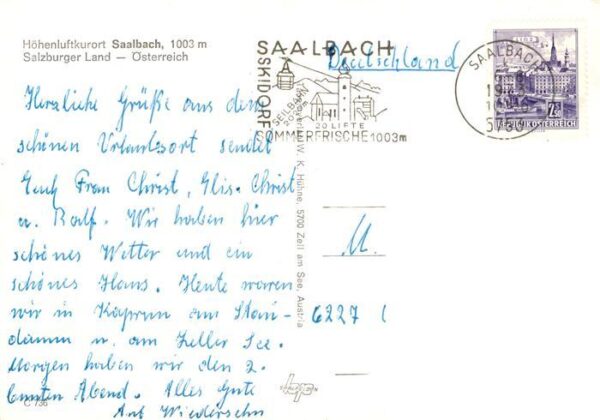 Höhenluftkurort Saalbach, 1003 m
Salzburger Land — Österreich
Herzliche Grüße aus dem
schönen Urlaubsort sendet
Euch Frau Christ, Elis. Christ
u. Ralf. Wir haben hier
schönes Wetter und ein
schönes Haus. Heute waren
wir in Kaprun am Stau-
damm u. am Zeller See.
Morgen haben wir den 2.
bunten Abend. Alles Gute
Auf Wiedersehn
C 736
W. K. Hühne, 5700 Zell am See, Austria
SAALBACH
SKIDORF
SEILBAHN
20 LIFTE
SOMMERFRISCHE 1003m
Deutschland
SAALBACH
19
LINZ
REPUBLIK ÖSTERREICH
6227